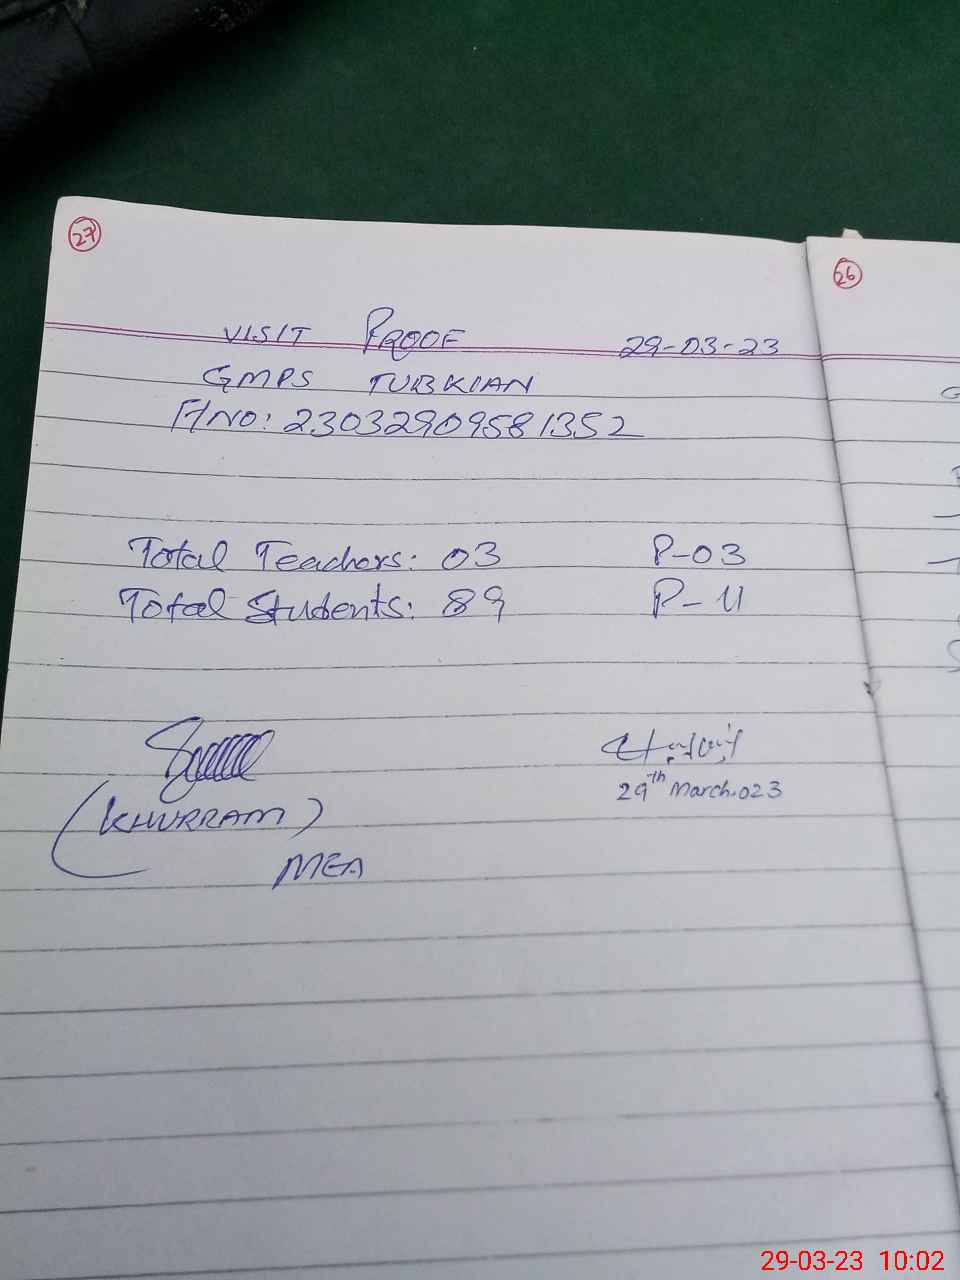 27
26
VISIT PROOF 29-03-23
GMPS TUBKIAN
F/NO: 23032909581352
Total Teachers: 03 P-03
Total Students: 89 P-11
29th March.023
(KHURRAM)
MEA
29-03-23 10:02